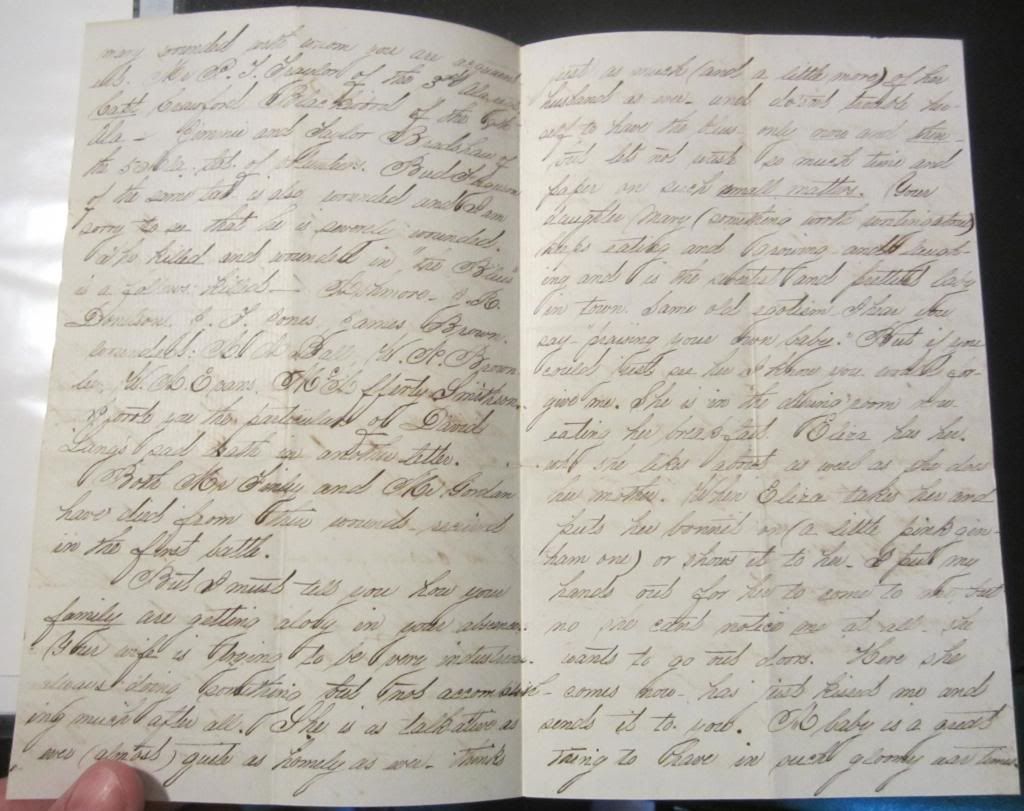 many wounded with whom you are acquaint-
ed. Mr P. T. of the 3rd Ala.
Crawford Blackwood of the 6th
Ala - Jimmie and Taylor Bradshaw of
the 5th Ala. Bat. of Volunteers. Bud
of the same bat is also wounded and I am
sorry to see that he is severely wounded.
The killed and wounded in "the Blues"
is as follows: killed - Ashmore - J. H.
Donelson. J. T. Jones, James Brown.
wounded: Ball, W. A. Brown
lee, W. L. Evans, Smithson.
I wrote you the particulars of David
Long's sad death in another letter.
Both Mr Finley and Mr Gordan
have died from their wounds - received
in the first battle.
But I must tell you how your
family are getting along in your absence.
Your wife is trying to be very industrious.
always doing something but not accomplish-
ing much after all. She is as talkative as
ever (almost) quite as homely as ever - thinks
just as much (and a little more) of her
husband as ever - and does not trouble her-
self to have the blues - only now and then -
but let's not waste so much time and
paper on such small matters. Your
daughter Mary (something worth writing about)
keeps eating and growing and laugh-
ing and is the sweetest and prettiest baby
in town. Same old egotism I hear you
say "praising your own baby." But if you
could just see her I know you would for-
give me. She is in the dining room now
eating her breakfast. Eliza has her.
who she likes about as well as she does
her mother. When Eliza takes her and
puts her bonnet on (a little pink gin-
ham one) or shows it to her - I put my
hands out for her to come to me, but
no she can't notice me at all - she
wants to go out doors. Here she
comes now - has just kissed me and
sends it to you. A baby is a great
thing to have in such gloomy war times.